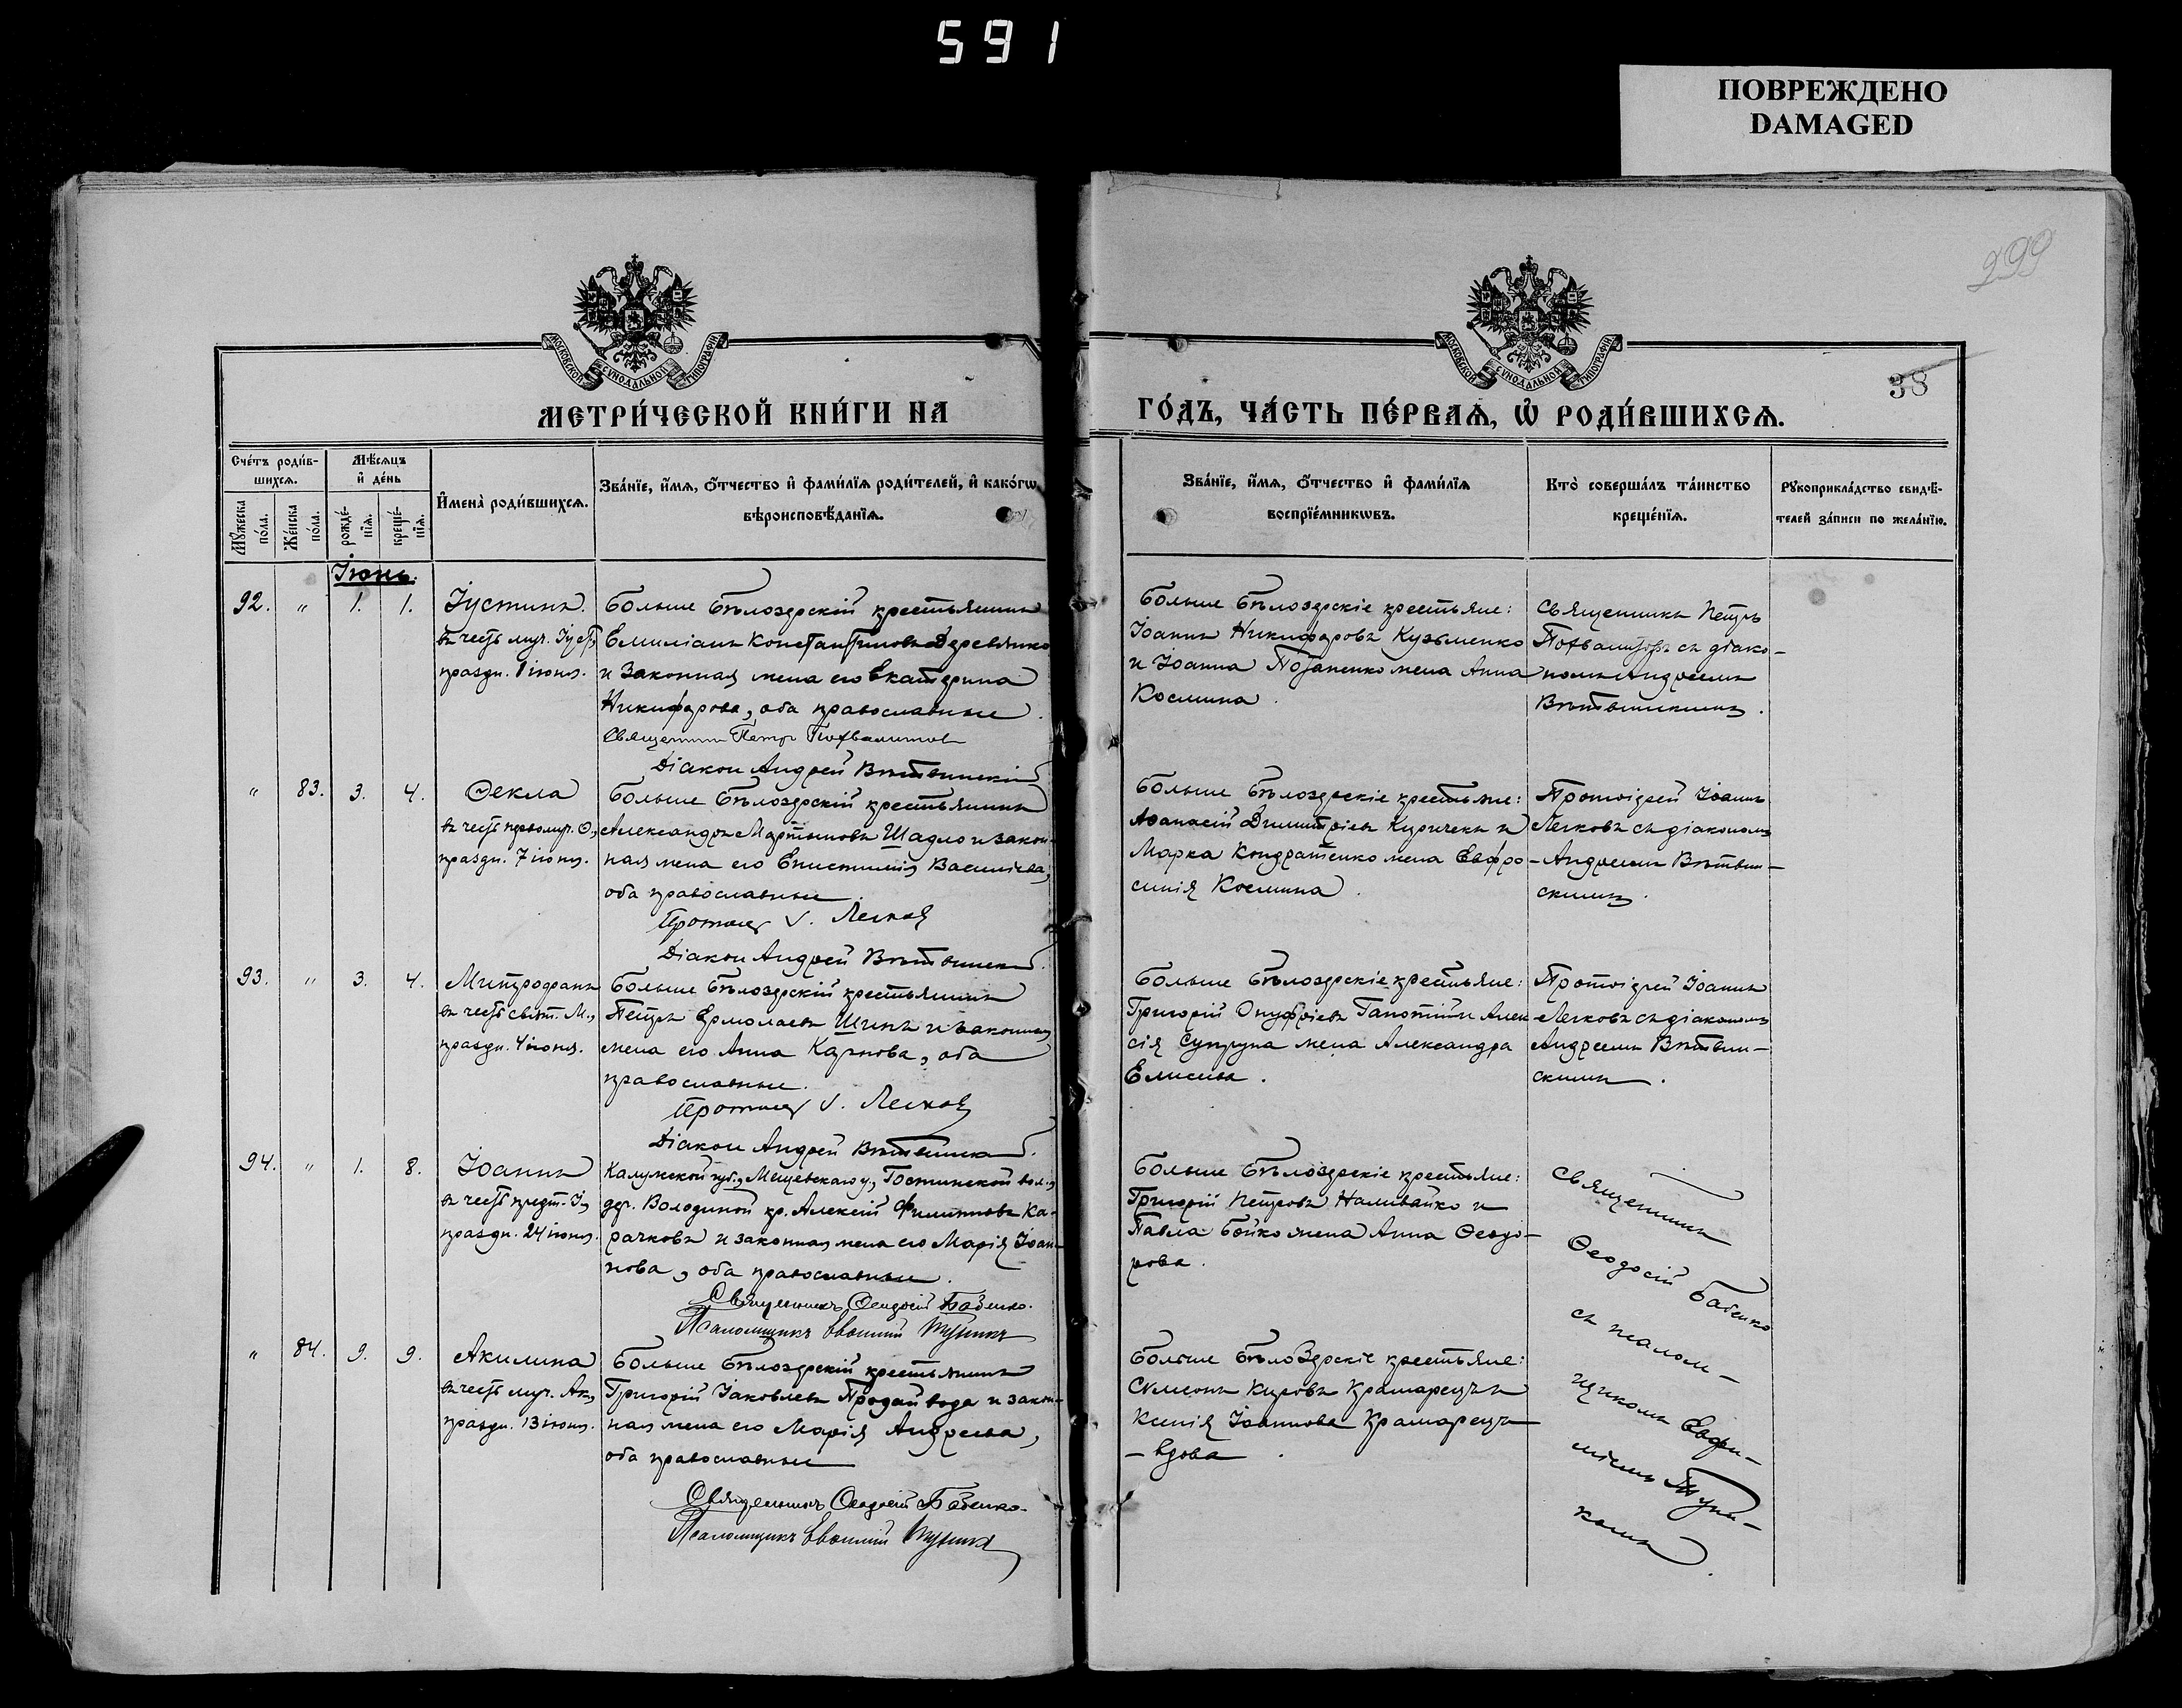 591
ПОВРЕЖДЕНО
DAMAGED
299
38
МОСКОВСКОЙ СУНОДАЛЬНОЙ ТИПОГРАФІИ
МОСКОВСКОЙ СУНОДАЛЬНОЙ ТИПОГРАФІИ
МЕТРИ́ЧЕСКОЙ КНИ́ГИ НА
ГО́ДЪ, ЧА́СТЬ ПЕ́РВАѦ, Ѡ҆ РОДИ́ВШИХСѦ.
Сче́тъ роди́в-
шихсѧ.
Мѣ́сѧцъ
и҆ де́нь
Мꙋ́жеска
по́ла.
Же́нска
по́ла.
рожде́-
нїѧ.
креще́-
нїѧ.
И҆мена̀ роди́вшихсѧ.
Зва́нїе, и҆́мѧ, ѻ҆́тчество и҆ фами́лїѧ роди́телей, и҆ како́гѡ
вѣроисповѣ́данїѧ.
Зва́нїе, и҆́мѧ, ѻ҆́тчество и҆ фами́лїѧ
воспрїе́мникѡвъ.
Кто̀ соверша́лъ та́инство
креще́нїѧ.
Рꙋкоприкла́дство свидѣ́-
телей за́писи по жела́нїю.
Іюнь.
92. " 1. 1. Іустинъ.
въ честь муч. Іуст.,
праздн. 1 іюня.
Больше Бѣлозерскій крестьянинъ
Емиліанъ Константиновъ Деревянко
и законная жена его Екатерина
Никифорова, оба православные.
Священникъ Петръ Похвалитовъ
Діаконъ Андрей Вѣтвинскій
Больше Бѣлозерскіе крестьяне:
Іоаннъ Никифоровъ Кузьменко
и Іоанна Потапенко жена Анна
Космина.
Священникъ Петръ
Похвалитовъ съ діако-
номъ Андреемъ
Вѣтвинскимъ.
" 83. 3. 4. Ѳекла
въ честь первомуч. Ѳ.,
праздн. 7 іюня.
Больше Бѣлозерскій крестьянинъ
Александръ Мартыновъ Шадло и закон-
ная жена его Епистимія Василіева,
оба православные
Протоіер. І. Легковъ
Діаконъ Андрей Вѣтвинскій.
Больше Бѣлозерскіе крестьяне:
Аѳанасій Димитріевъ Куричекъ и
Марка Кондратенко жена Евфро-
синія Космина.
Протоіерей Іоаннъ
Легковъ съ діакономъ
Андреемъ Вѣтвин-
скимъ.
93. " 3. 4. Митрофанъ
въ честь свят. М.,
праздн. 4 іюня.
Больше Бѣлозерскій крестьянинъ
Петръ Ермолаевъ Шинъ и законная
жена его Анна Карпова, оба
православные.
Протоіер. І. Легковъ
Діаконъ Андрей Вѣтвинскій.
Больше Бѣлозерскіе крестьяне:
Григорій Онуфріевъ Гапотій и Алек-
сія Супруна жена Александра
Елисеева.
Протоіерей Іоаннъ
Легковъ съ діакономъ
Андреемъ Вѣтвин-
скимъ.
94. " 1. 8. Іоаннъ
въ честь предт. І.,
праздн. 24 іюня.
Калужской губ., Мещевскаго у., Гостинской вол.,
дер. Володиной кр. Алексій Филипповъ Ка-
рачковъ и законная жена его Марія Іоан-
нова, оба православные.
Священникъ Ѳеодосій Бабенко.
Псаломщикъ Евѳимій Тупикъ
Больше Бѣлозерскіе крестьяне:
Григорій Петровъ Наливайко и
Павла Бойко жена Анна Ѳеодо-
рова.
Священникъ
Ѳеодосій Бабенко
съ псалом-
щикомъ Евфи-
міемъ Тупи-
комъ.
" 84. 9. 9. Акилина
въ честь муч. Ак.,
праздн. 13 іюня.
Больше Бѣлозерскій крестьянинъ
Григорій Іаковлевъ Продайвода и закон-
ная жена его Марія Андреева,
оба православные
Священникъ Ѳеодосій Бабенко.
Псаломщикъ Евѳимій Тупикъ
Больше Бѣлозерскіе крестьяне:
Симеонъ Кировъ Крамарецъ и
Ксенія Іоаннова Крамарецъ
- вдова.